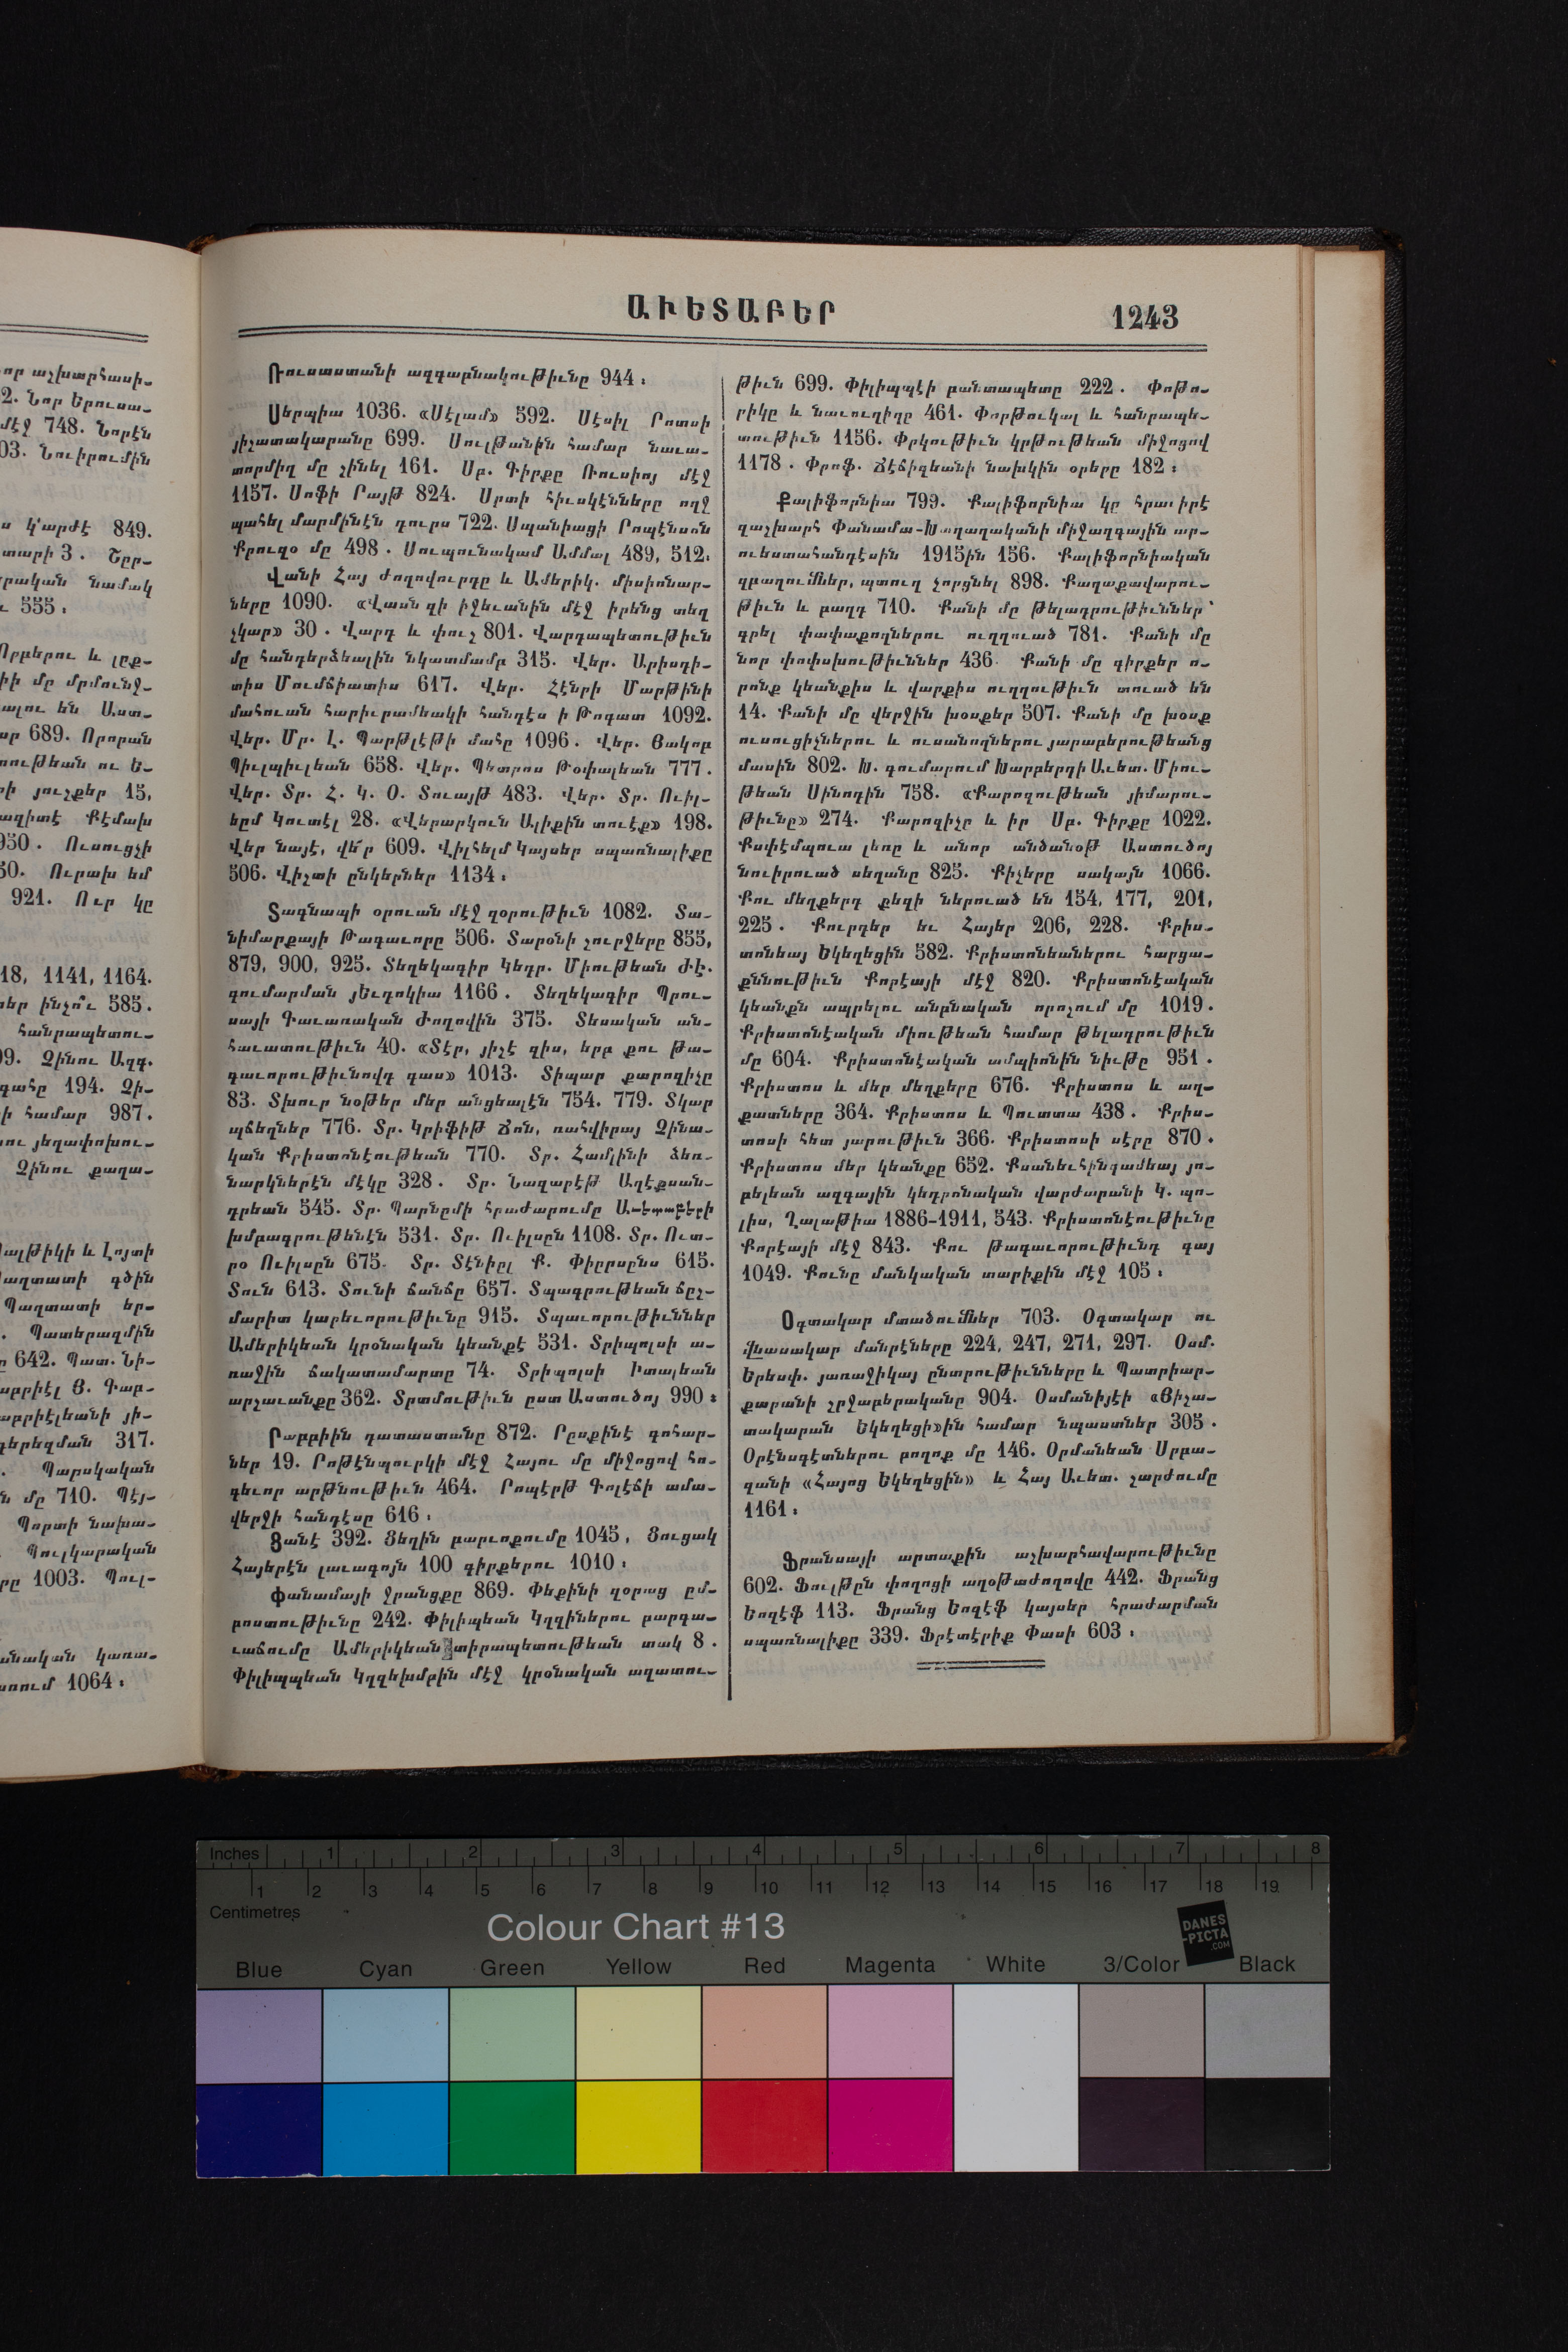 որ աշխարհասի-
2. Նոր Երուսա-
մէջ 748. Նորէն
03. Նուիրումին
ս կ՚արժէ 849.
տարի 3. Շըր-
րական նամակ
555։
Որբերու և լըք-
իի մը մրմունջ-
ալու են Աստ-
689. Որորան
ութեան ու Ե-
յուշքեր 15,
Քէմախ
950. Ուսուցչի
50. Ուրախ եմ
921. Ուր կը
18, 1141, 1164.
եր ինչո՞ւ 585.
հանրապետու-
09. Չինու Ազգ.
գահը 194. Չի-
ի համար 987.
ու յեղափոխու-
Չինու քաղա-
և Լոյտի
գծին
Պաղտատի եր-
Պատերազմին
642. Պատ. Նի-
Յ. Գաբ-
յի-
317.
Պարսկական
ն մը 710. Պէյ-
Պորտի նախա-
Պուլկարական
րը 1003. Պուլ-
կառա-
1064։
ԱՒԵՏԱԲԵՐ
1243
Ռուսաստանի ազգաբնակութիւնը 944։
Սերպիա 1036. «Սէլամ» 592. Սէսիլ Րոտսի
յիշատակարանը 699. Սուլթանին համար նաւա-
տորմիղ մը շինել 161. Սբ. Գիրքը Ռուսիոյ մէջ
1157. Սոֆի Րայթ 824. Սրտի հիւսկէնները ողջ
պահել մարմինէն դուրս 722. Սպանիացի Րոպէնսոն
Քրուզօ մը 498. Սուպունակամ Ամմալ 489, 512։
Վանի Հայ ժողովուրդը և Ամերիկ. միսիոնար-
ները 1090. «Վասն զի իջեւանին մէջ իրենց տեղ
չկար» 30. Վարդ և փուշ 801. Վարդապետութիւն
մը հանդերձեալին նկատմամբ 315. Վեր. Արիսդի-
տիս Մումճիատիս 617. Վեր. Հէնրի Մարթինի
մահուան հարիւրամեակի հանդէս ի Թոգատ 1092.
Վեր. Մր. Լ. Պարթլէթի մահը 1096. Վեր. Յակոբ
Պիւլպիւլեան 658. Վեր. Պետրոս Թօփալեան 777.
Վեր. Տր. Հ. Կ. Օ. Տուայթ 483. Վեր. Տր. Ուիլ-
եըմ Կուտէլ 28. «Վերարկուն Ալիքին տուէք» 198.
Վեր նայէ, վե՛ր 609. Վիլհելմ Կայսեր սպառնալիքը
506. Վիշտի ընկերներ 1134։
Տագնապի օրուան մէջ զօրութիւն 1082. Տա-
նիմարքայի Թագաւորը 506. Տարօնի շուրջերը 855,
879, 900, 925. Տեղեկագիր Կեդր. Միութեան ԺԷ.
գումարման յԵւդոկիա 1166. Տեղեկագիր Պրու-
սայի Գաւառական Ժողովին 375. Տեսական ան-
հաւատութիւն 40. «Տէր, յիշէ զիս, երբ քու թա-
գաւորութիւնովդ գաս» 1013. Տիպար քարոզիչը
83. Տխուր նօթեր մեր անցեալէն 754. 779. Տկար
պճեղներ 776. Տր. Կրիֆիթ Ճոն, ռահվիրայ Չինա-
կան Քրիստոնէութեան 770. Տր. Համլինի ձեռ-
նարկներէն մէկը 328. Տր. Նազարէթ Աղէքսան-
դրեան 545. Տր. Պարնըմի հրաժարումը Աւետաբերի
խմբագրութենէն 531. Տր. Ուիլսըն 1108. Տր. Ուտ-
րօ Ուիլսըն 675. Տր. Տէնիըլ Ք. Փիըրսընս 615.
Տուն 613. Տունի ճանճը 657. Տպագրութեան ճըշ-
մարիտ կարեւորութիւնը 915. Տպաւորութիւններ
Ամերիկեան կրօնական կեանքէ 531. Տրիպոլսի ա-
ռաջին ճակատամարտը 74. Տրիպոլսի Իտալեան
արշաւանքը 362. Տրտմութիւն ըստ Աստուծոյ 990։
Րաբբիին դատաստանը 872. Րըսքինէ գոհար-
ներ 19. Րոթէնպուրկի մէջ Հայու մը միջոցով հո-
գեւոր արթնութիւն 464. Րոպէրթ Գոլէճի ամա-
վերջի հանդէսը 616։
Ցանէ 392. Ցեղին բարւոքումը 1045, Ցուցակ
Հայերէն լաւագոյն 100 գիրքերու 1010։
Փանամայի ջրանցքը 869. Փեքինի զօրաց ըմ-
բոստութիւնը 242. Փիլիպեան Կղզիներու բարգա-
ւաճումը Ամերիկեան տիրապետութեան տակ 8.
Փիլիպպեան Կղզեխմբին մէջ կրօնական ազատու-
թիւն 699. Փիլիպպէի բանտապետը 222. Փոթո-
րիկը և նաւուղիղը 461. Փորթուկալ և հանրապե-
տութիւն 1156. Փրկութիւն կրթութեան միջոցով
1178. Փրոֆ. Ճէճիզեանի նախկին օրերը 182։
Քալիֆորնիա 799. Քալիֆորնիա կը հրաւիրէ
զաշխարհ Փանամա-Խաղաղականի միջազգային ար-
ուեստահանդէսին 1915ին 156. Քալիֆորնիական
զբաղումներ, պտուղ չորցնել 898. Քաղաքավարու-
թիւն և բաղդ 710. Քանի մը թելադրութիւններ՝
գրել փափաքողներու ուղղուած 781. Քանի մը
նոր փոփոխութիւններ 436. Քանի մը գիրքեր ո-
րոնք կեանքիս և վարքիս ուղղութիւն տուած են
14. Քանի մը վերջին խօսքեր 507. Քանի մը խօսք
ուսուցիչներու և ուսանողներու յարաբերութեանց
մասին 802. Խ. գումարում Խարբերդի Աւետ. Միու-
թեան Սինոդին 758. «Քարոզութեան յիմարու-
թիւնը» 274. Քարոզիչը և իր Սբ. Գիրքը 1022.
Քսփէմպուա լեռը և անոր անծանօթ Աստուծոյ
նուիրուած սեղանը 825. Քիչերը սակայն 1066.
Քու մեղքերդ քեզի ներուած են 154, 177, 201,
225. Քուրդեր եւ Հայեր 206, 228. Քրիս-
տոնեայ Եկեղեցին 582. Քրիստոնեաներու հարցա-
քննութիւն Քորէայի մէջ 820. Քրիստոնէական
կեանքն ապրելու անբնական որոշում մը 1019.
Քրիստոնէական միութեան համար թելադրութիւն
մը 604. Քրիստոնէական ամպիոնին նիւթը 951.
Քրիստոս և մեր մեղքերը 676. Քրիստոս և աղ-
քատները 364. Քրիստոս և Պուտտա 438. Քրիս-
տոսի հետ յարութիւն 366. Քրիստոսի սէրը 870.
Քրիստոս մեր կեանքը 652. Քսանեւհինգամեայ յո-
բելեան ազգային կեդրոնական վարժարանի Կ. պո-
լիս, Ղալաթիա 1886-1911, 543. Քրիստոնէութիւնը
Քորէայի մէջ 843. Քու թագաւորութիւնդ գայ
1049. Քունը մանկական տարիքին մէջ 105։
Օգտակար մտածումներ 703. Օգտակար ու
վնասակար մանրէները 224, 247, 271, 297. Օսմ.
Երեսփ. յառաջիկայ ընտրութիւնները և Պատրիար-
քարանի շրջաբերականը 904. Օսմանիյէի «Յիշա-
տակարան Եկեղեցի»ին համար նպաստներ 305.
Օրէնսգէտներու բողոք մը 146. Օրմանեան Սրբա-
զանի «Հայոց Եկեղեցին» և Հայ Աւետ. շարժումը
1161։
Ֆրանսայի արտաքին աշխարհավարութիւնը
602. Ֆուլթըն փողոցի աղօթաժողովը 442. Ֆրանց
Եոզէֆ 113. Ֆրանց Եոզէֆ կայսեր հրաժարման
սպառնալիքը 339. Ֆրէտէրիք Փասի 603։
Inches 1 2 3 4 5 6 7 8
1 2 3 4 5 6 7 8 9 10 11 12 13 14 15 16 17 18 19
Centimetres
Colour Chart #13
DANES
-PICTA
.COM
Blue Cyan Green Yellow Red Magenta White 3/Color Black